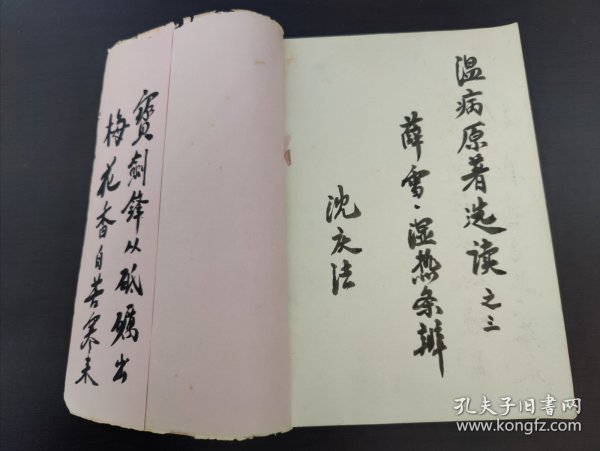 温病原著选读之三
薛雪:湿热条辨
沈庆法
寳劍鋒从砥礪出
梅花香自苦寒来
孔夫子旧书网
www.kongfz.com